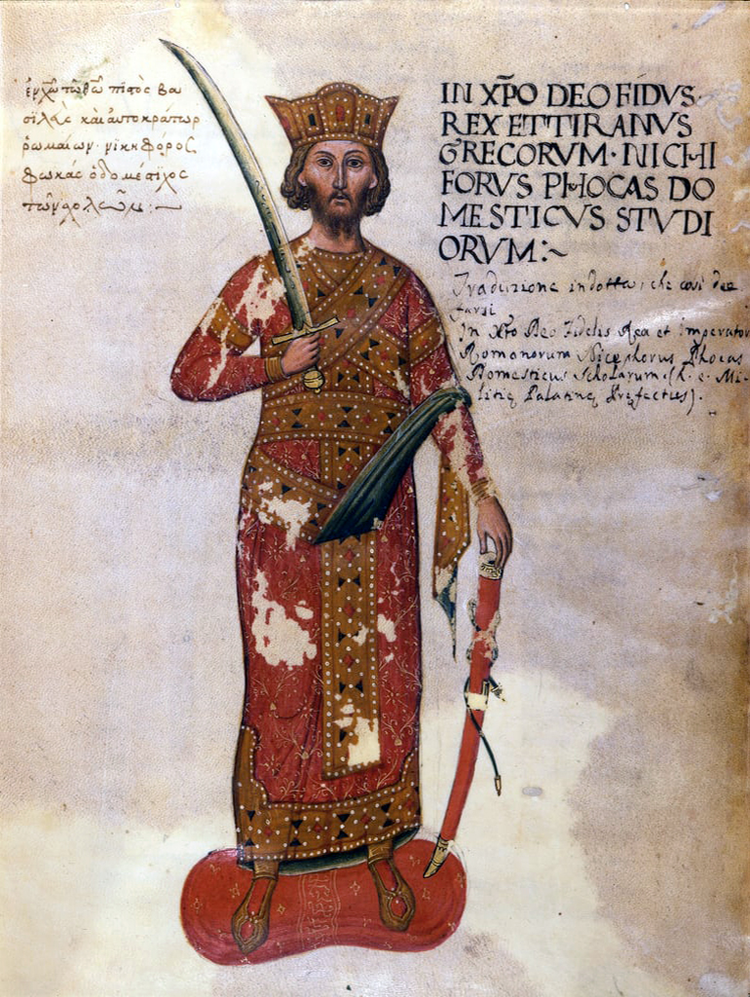 ἐν χω τῶ θω πιςὸς βα
σιλεὺς καὶ αυτοκράτωρ
ῥωμαίων· νικηφόρος
φωκάς ὁ δομέςιχος
τῶν χολῶν :~
IN XP̄O DEO FIDVS·
REX ET TIRANVS
GRECORVM· NICHI
FORVS PHOCAS DO
MESTICVS STVDI
ORVM:~
Traduzione indotta, che così dee
farsi
In Xto Deo Fidelis Rex et Imperator
Romonorum Nicephorus Phocas
Domesticus Scholarum (h. e. Mi-
litię Palatinę Pręfectus).